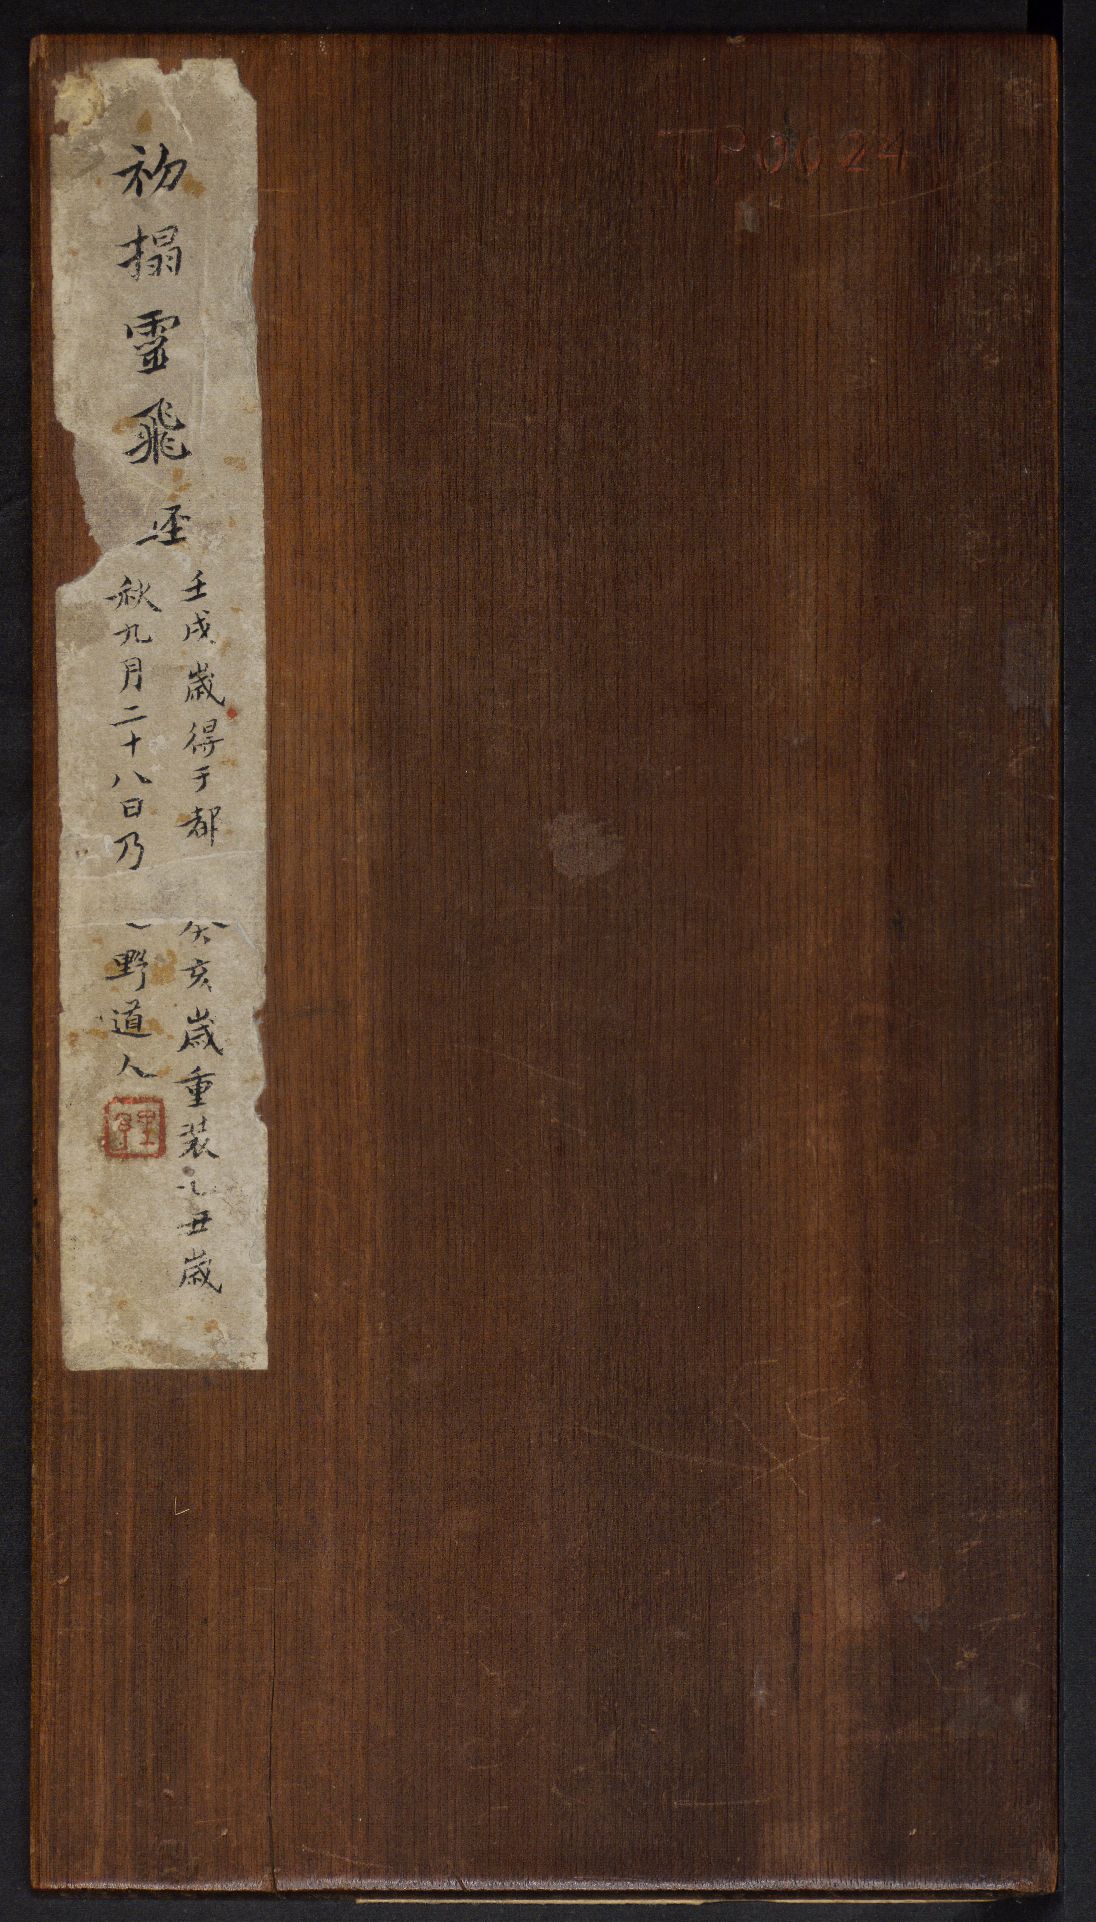 初搨靈飛經
壬戌歲得于都
秋九月二十八日乃
癸亥歲重裝乙丑歲
野道人
TP0024